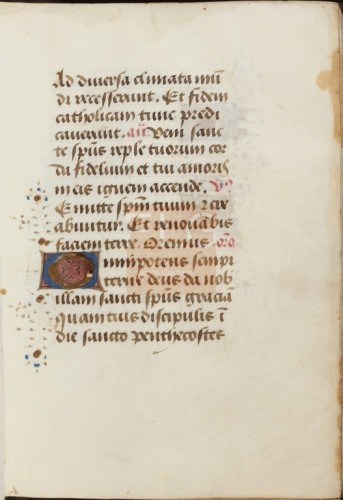 Ad diversa climata mū
di recesserunt. Et fidem
catholicam tunc predi
caverunt. añ Veni sanc
te sp̄us reple tuorum cor
da fidelium et tui amoris
in eis ignem accende. V̄s
Emitte sp̄m tuum 7 cre
abuntur. Et renovabis
faciem terre. Oremus oro
Omnipotens sempi
terne deus da nob
illam sancti sp̄us graciā
quam tuis discipulis ī
die sancto penthecostes